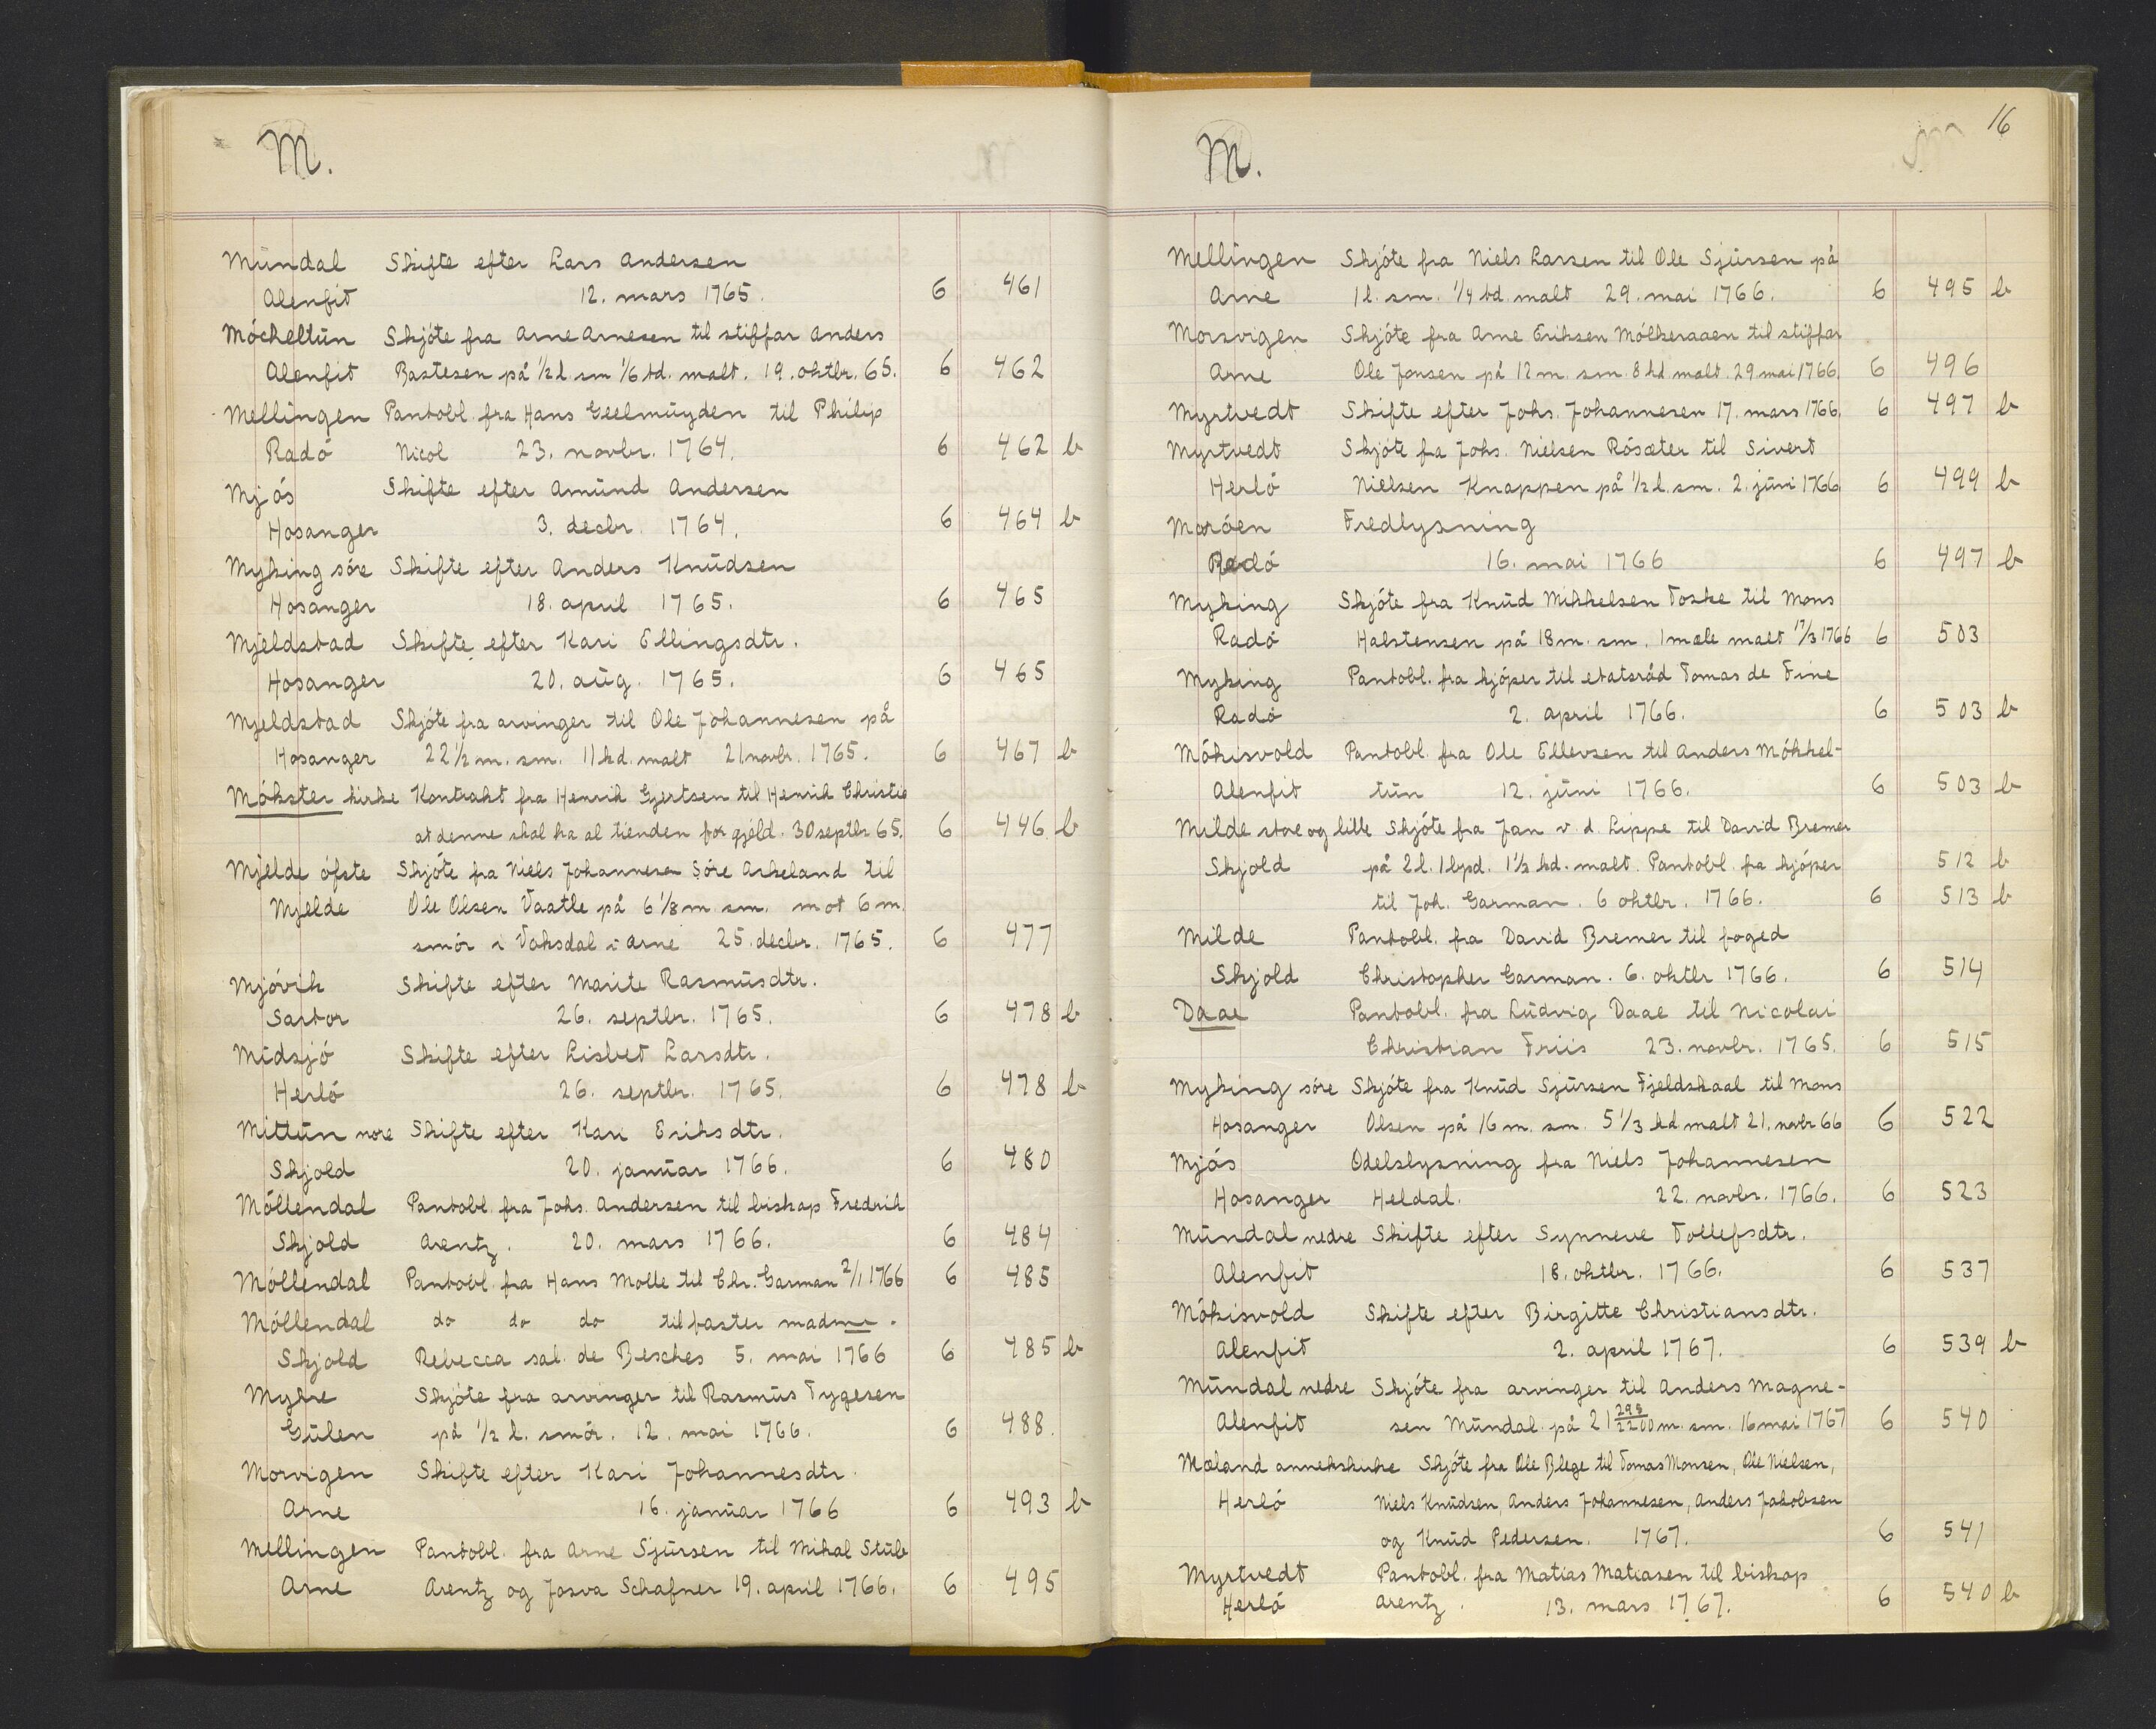 M.
Mundal Skifte efter Lars Andersen
Alenfit 12. mars 1765. 6 461
Möcheltun Skjöte fra Arne Arnesen til stiffar Anders
Alenfit Bastesen på ½ l. sm ⅙ td. malt. 19. oktbr. 65. 6 462
Mellingen Pantobl. fra Hans Geelmuyden til Philip
Radö Nicol 23. novbr. 1764. 6 462 b
Mjös Skifte efter Amund Andersen
Hosanger 3. decbr. 1764. 6 464 b
Myking söre Skifte efter Anders Knudsen
Hosanger 18. april 1765. 6 465
Mjeldstad Skifte efter Kari Ellingsdtr.
Hosanger 20. aug. 1765. 6 465
Mjeldstad Skjöte fra arvinger til Ole Johannesen på
Hosanger 22½ m. sm. 11 kd. malt 21 novbr. 1765. 6 467 b
Mökster kirke Kontrakt fra Henrik Gjertsen til Henrik Christie
at denne skal ha al tienden for gjeld. 30 septbr 65. 6 446 b
Mjelde öfste Skjöte fra Niels Johannesen Söre Arkeland til
Mjelde Ole Olsen Vaatle på 6⅛ m sm. mot 6 m.
smör i Vaksdal i Arne 25. decbr. 1765. 6 477
Mjövik Skifte efter Marite Rasmusdtr.
Sartor 26. septbr. 1765. 6 478 b
Midsjö Skifte efter Lisbet Larsdtr.
Herlö 26. septbr. 1765. 6 478 b
Mittun nore Skifte efter Kari Eriksdtr.
Skjold 20. januar 1766. 6 480
Möllendal Pantobl. fra Johs. Andersen til biskop Fredrik
Skjold Arentz. 20. mars 1766. 6 484
Möllendal Pantobl. fra Hans Molle til Chr. Garman 2/1 1766 6 485
Möllendal do do do til paster madme.
Skjold Rebecca sal. de Besches 5. mai 1766 6 485 b
Myhre Skjöte fra arvinger til Rasmus Tygesen
Gulen på ½ l. smör. 12. mai 1766. 6 488.
Morvigen Skifte efter Kari Johannesdtr.
Arne 16. januar 1766 6 493 b
Mellingen Pantobl. fra Arne Sjursen til Mikal Stub
Arne Arentz og Josva Schafner 19. april 1766. 6 495
16
M.
Mellingen Skjöte fra Niels Larsen til Ole Sjursen på
Arne 1 l. sm. ¼ td. malt 29. mai 1766. 6 495 b
Morsvigen Skjöte fra Arne Eriksen Mölkeraaen til stiffar
Arne Ole Jonsen på 12 m. sm. 8 kd. malt. 29. mai 1766. 6 496
Myrtvedt Skifte efter Johs. Johannesen 17. mars 1766. 6 497 b
Myrtvedt Skjöte fra Johs. Nielsen Rösæter til Sivert
Herlö Nielsen Knappen på ½ l. sm. 2. juni 1766 6 499 b
Moröen Fredlysning
Radö 16. mai 1766 6 497 b
Myking Skjöte fra Knud Mikkelsen Toske til Mons
Radö Halstensen på 18 m. sm. 1 mæle malt 17/3 1766 6 503
Myking Pantobl. fra kjöper til etatsråd Tomas de Fine
Radö 2. april 1766. 6 503 b
Mökisvold Pantobl. fra Ole Ellevsen til Anders Mökkel-
Alenfit tun 12. juni 1766. 6 503 b
Milde store og lille Skjöte fra Jan v. d. Lippe til David Bremer
Skjold på 2 l. 1 bpd. 1½ hd. malt. Pantobl. fra kjöper 512 b
til Joh. Garman. 6 oktbr. 1766. 6 513 b
Milde Pantobl. fra David Bremer til foged
Skjold Christopher Garman. 6. oktbr 1766. 6 514
Daae Pantobl. fra Ludvig Daae til Nicolai
Christian Friis 23. novbr. 1765. 6 515
Myking söre Skjöte fra Knud Sjursen Fjeldskaal til Mons
Hosanger Olsen på 16 m. sm. 5⅓ kd malt 21. novbr 66 6 522
Mjös Odelslysning fra Niels Johannesen
Hosanger Heldal. 22. novbr. 1766. 6 523
Mundal nedre Skifte efter Synneve Tollefsdtr.
Alenfit 18. oktbr. 1766. 6 537
Mökisvold Skifte efter Birgitte Christiansdtr.
Alenfit 2. april 1767. 6 539 b
Mundal nedre Skjöte fra arvinger til Anders Magne-
Alenfit sen Mundal på 21 298/2200 m. sm. 16 mai 1767 6 540
Mæland annekskirke Skjöte fra Ole Blege til Tomas Monsen, Ole Nielsen,
Herlö Niels Knudsen, Anders Johannesen, Anders Jakobsen
og Knud Pedersen. 1767. 6 541
Myrtvedt Pantobl. fra Matias Matiasen til biskop
Herlö Arentz. 13. mars 1767. 6 540 b